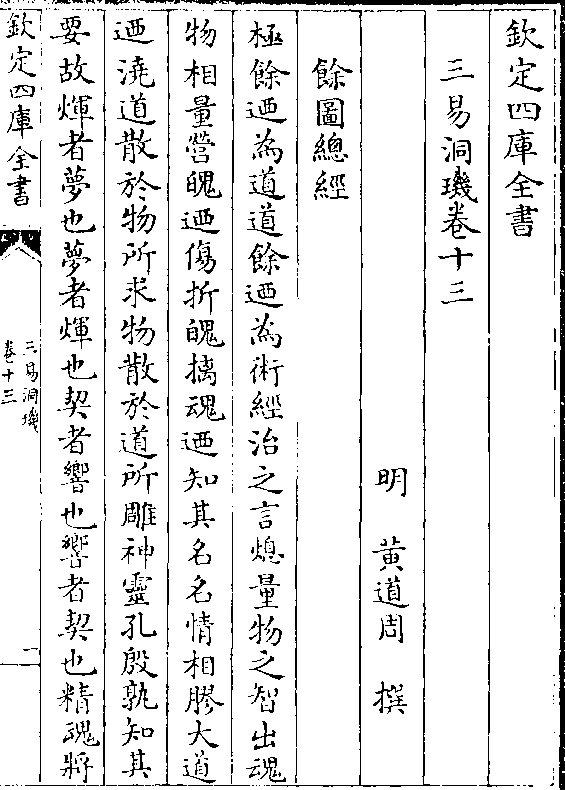 欽定四庫全書
三易洞璣卷十三
明 黄道周 撰
餘圖總經
極餘迺為道道餘迺為術經治之言熄量物之智出魂
物相量營魄迺傷折魄摛魂迺知其名名情相膠大道
迺澆道散於物所求物散於道所雕神靈孔殷孰知其
要故煇者夢也夢者煇也契者響也響者契也精魂將
欽定四庫全書
三易洞璣
卷十三
一